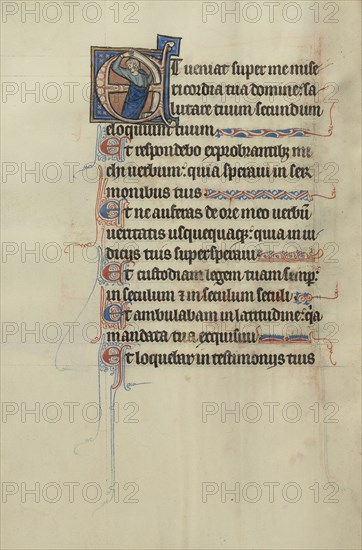 Et veniat super me mise
ricordia tua domine: sa
lutare tuum secundum
eloquium tuum.
Et respondebo exprobrantibꝫ mi
chi verbum: quia speravi in ser
monibus tuis
Et ne auferas de ore meo verbū
veritatis usquequaqꝫ: quia in iu
diciis tuis supersperavi
Et custodiam legem tuam semp̄:
in seculum ⁊ in seculum seculi
Et ambulabam in latitudine: q̄a
mandata tua exquisivi
Et loquebar in testimoniis tuis